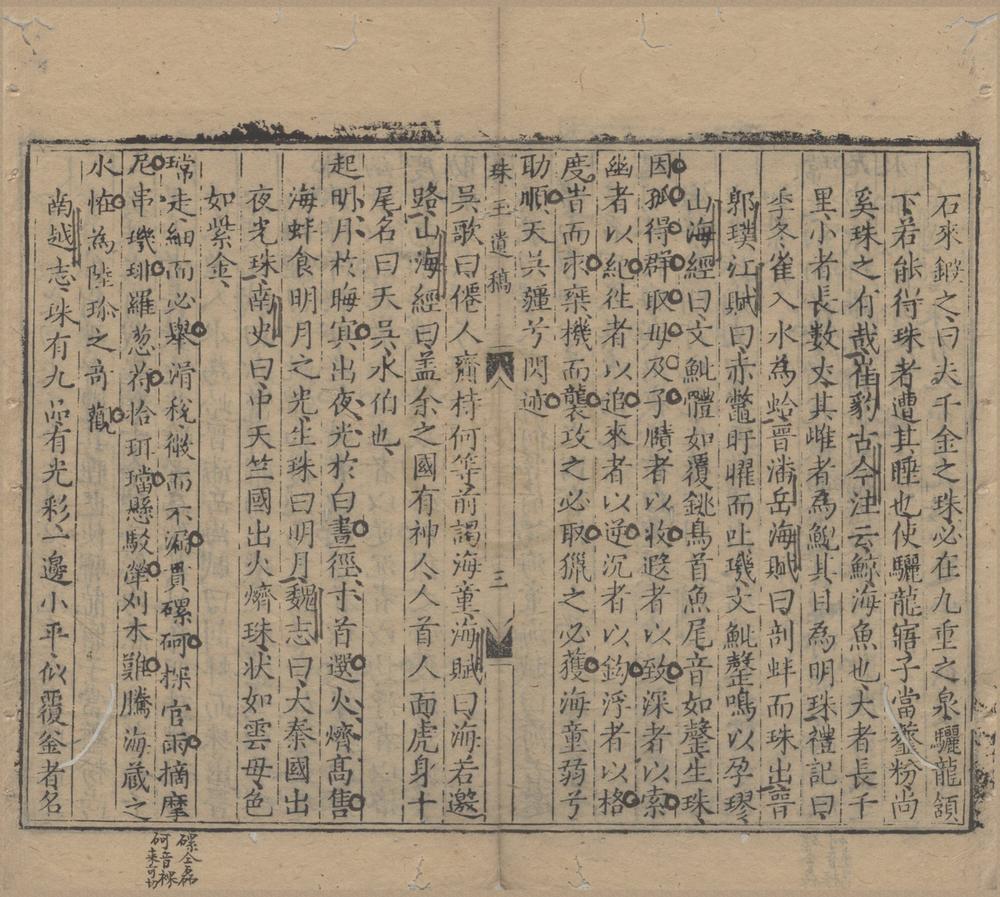 石來鍜之曰夫千金之珠必在九重之泉驪龍頷
下若能待珠者遭其睡也使驪龍寤子當虀粉尚
奚珠之有哉崔豹古今注云鯨海魚也大者長千
里小者長數丈其雌者為鯢其目為明珠禮記曰
季冬雀入水為蛤晉潘岳海賦曰剖蚌而珠出晉
郭璞江賦曰赤鼈盱曜而吐璣文魮磬鳴以孕璆
山海經曰文魮體如覆銚鳥首魚尾音如磬生珠
因孤得群取母及子賾者以收遐者以致深者以索
幽者以紀徃者以追來者以逆沉者以鈎浮者以格
度昔而求棄機而襲攻之必取獵之必獲海童蒭兮
助順天吳疆兮閃迹
珠王遺稿
三
吳歌曰僊人齎持何等前謁海童海賦曰海若邀
路山海經曰盖余之國有神人人首人面虎身十
尾名曰天吳水伯也
起明月於晦㝠出夜光於白晝徑寸首選火齊髙售
海蚌食明月之光生珠曰明月魏志曰大秦國出
夜光珠南史曰中天竺國出火齊珠状如雲母色
如紫金
璫走細而必舉滑稅微而不漏貫磥砢探官雨摘摩
尼串璣琲羅葱苻恰珥璫懸駁犖刈木難騰海蔵之
水恠為陸珍之竒觀
南越志珠有九品有光彩一邊小平似覆釜者名
磥仝磊
砢音裸
来可切